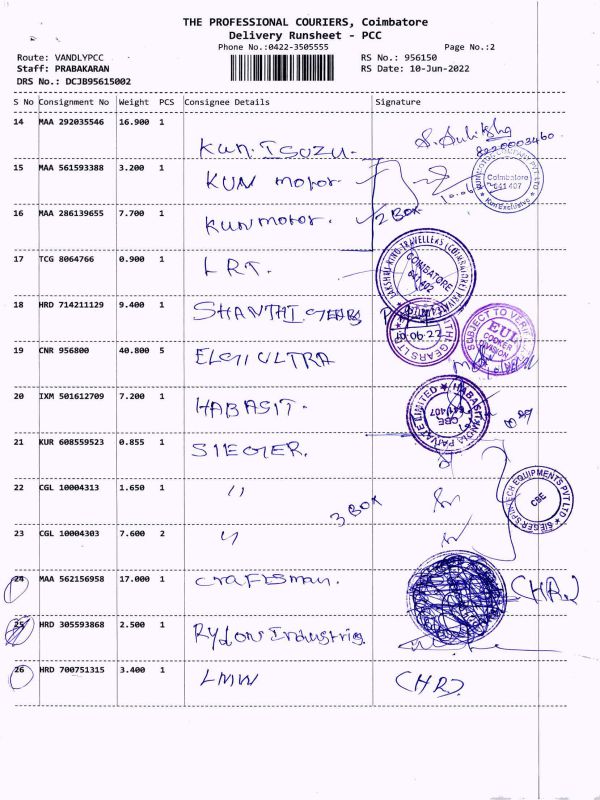 THE PROFESSIONAL COURIERS, Coimbatore
Delivery Runsheet - PCC
Phone No.:0422-3505555 Page No.:2
Route: VANDLYPCC RS No.: 956150
Staff: PRABAKARAN RS Date: 10-Jun-2022
DRS No.: DCJB95615002
S No Consignment No Weight PCS Consignee Details Signature
14 MAA 292035546 16.900 1 Kun. Isuzu. 8220003460
15 MAA 561593388 3.200 1 KUN motor
Coimbatore
641 407
16 MAA 286139655 7.700 1 KUN motor. 2 Box
17 TCG 8064766 0.900 1 LRT.
COIMBATORE
641 402
18 HRD 714211129 9.400 1 SHANTHI GEARS
10.06.22
SUBJECT TO
EUL
COOKER
DIVISION
19 CNR 956800 40.800 5 ELGI ULTRA
20 IXM 501612709 7.200 1 HABASIT.
HABASIT INDIA PRIVATE LIMITED
CBE
641407
21 KUR 608559523 0.855 1 SIEGER.
22 CGL 10004313 1.650 1 " 3 Box
SIEGER SPINTECH EQUIPMENTS PVT LTD
CBE
23 CGL 10004303 7.600 2 "
24 MAA 562156958 17.000 1 Craftsman.
25 HRD 305593868 2.500 1
26 HRD 700751315 3.400 1 LMW